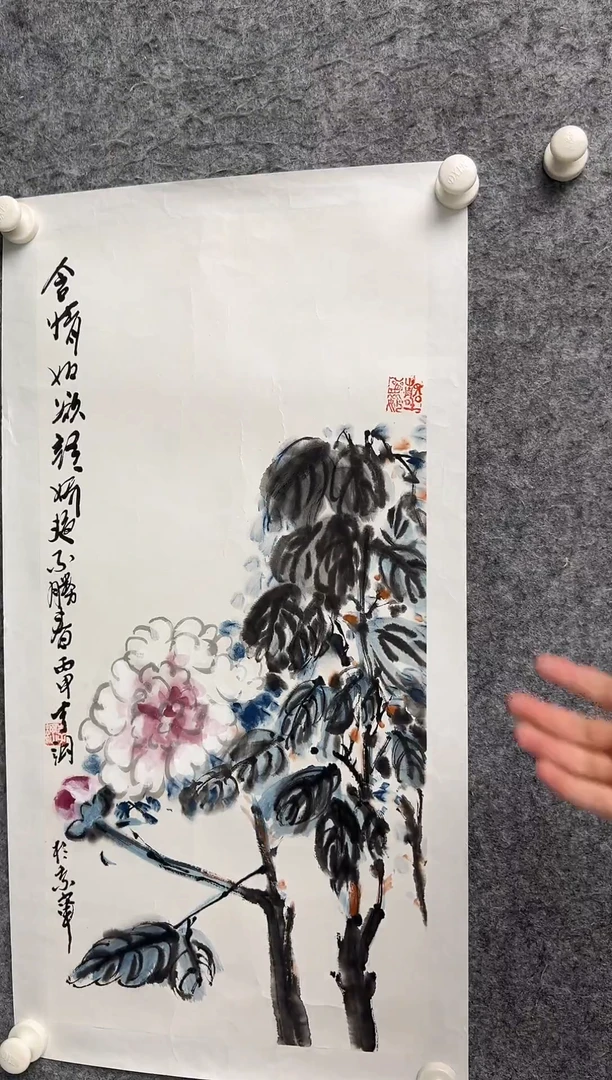 含情如欲語嬌不勝春丙申李润於京華